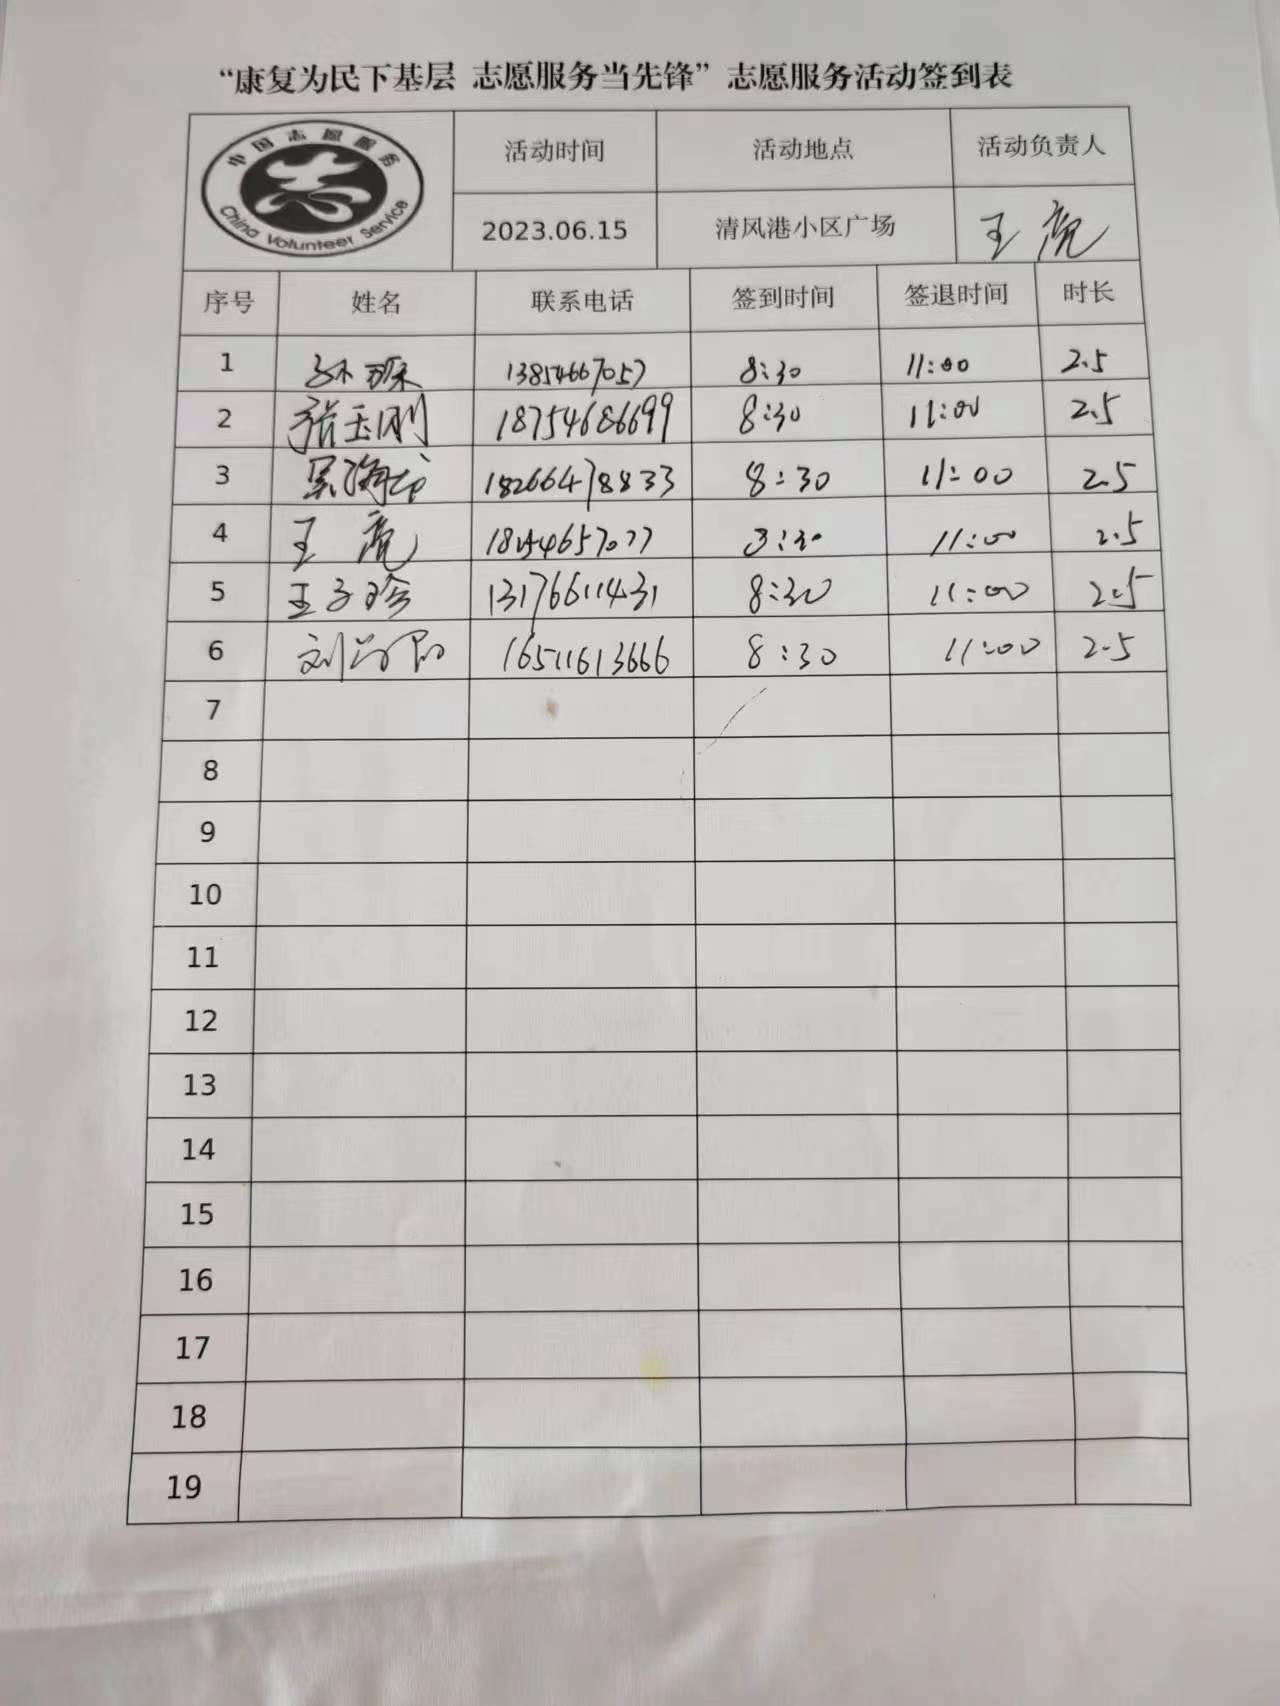 “康复为民下基层 志愿服务当先锋”志愿服务活动签到表
中国志愿服务
China Volunteer Service
活动时间 活动地点 活动负责人
2023.06.15 清风港小区广场 王虎
序号 姓名 联系电话 签到时间 签退时间 时长
1 孙琛 13854667057 8:30 11:00 2.5
2 张玉刚 18754686699 8:30 11:00 2.5
3 18266478833 8:30 11:00 2.5
4 王虎 8:30 11:00 2.5
5 王子珍 13176611431 8:30 11:00 2.5
6 16511613666 8:30 11:00 2.5
7
8
9
10
11
12
13
14
15
16
17
18
19